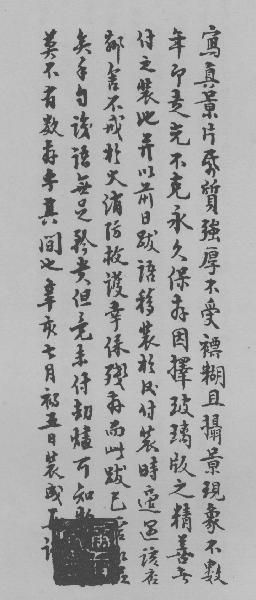 寫真景片帋質強厚不受褾糊且攝景現象不數
年即走光不克永久保存因擇玻璃版之精善者
付之裝池并以前日跋語移裝於後付裝時適過該店
鄰舍不戒於火消防救護幸保殘存而此跋已
矣手句談語無足矜貴但竟未付劫燼可知
莫不有數存乎其間也辛亥七月初五日裝成